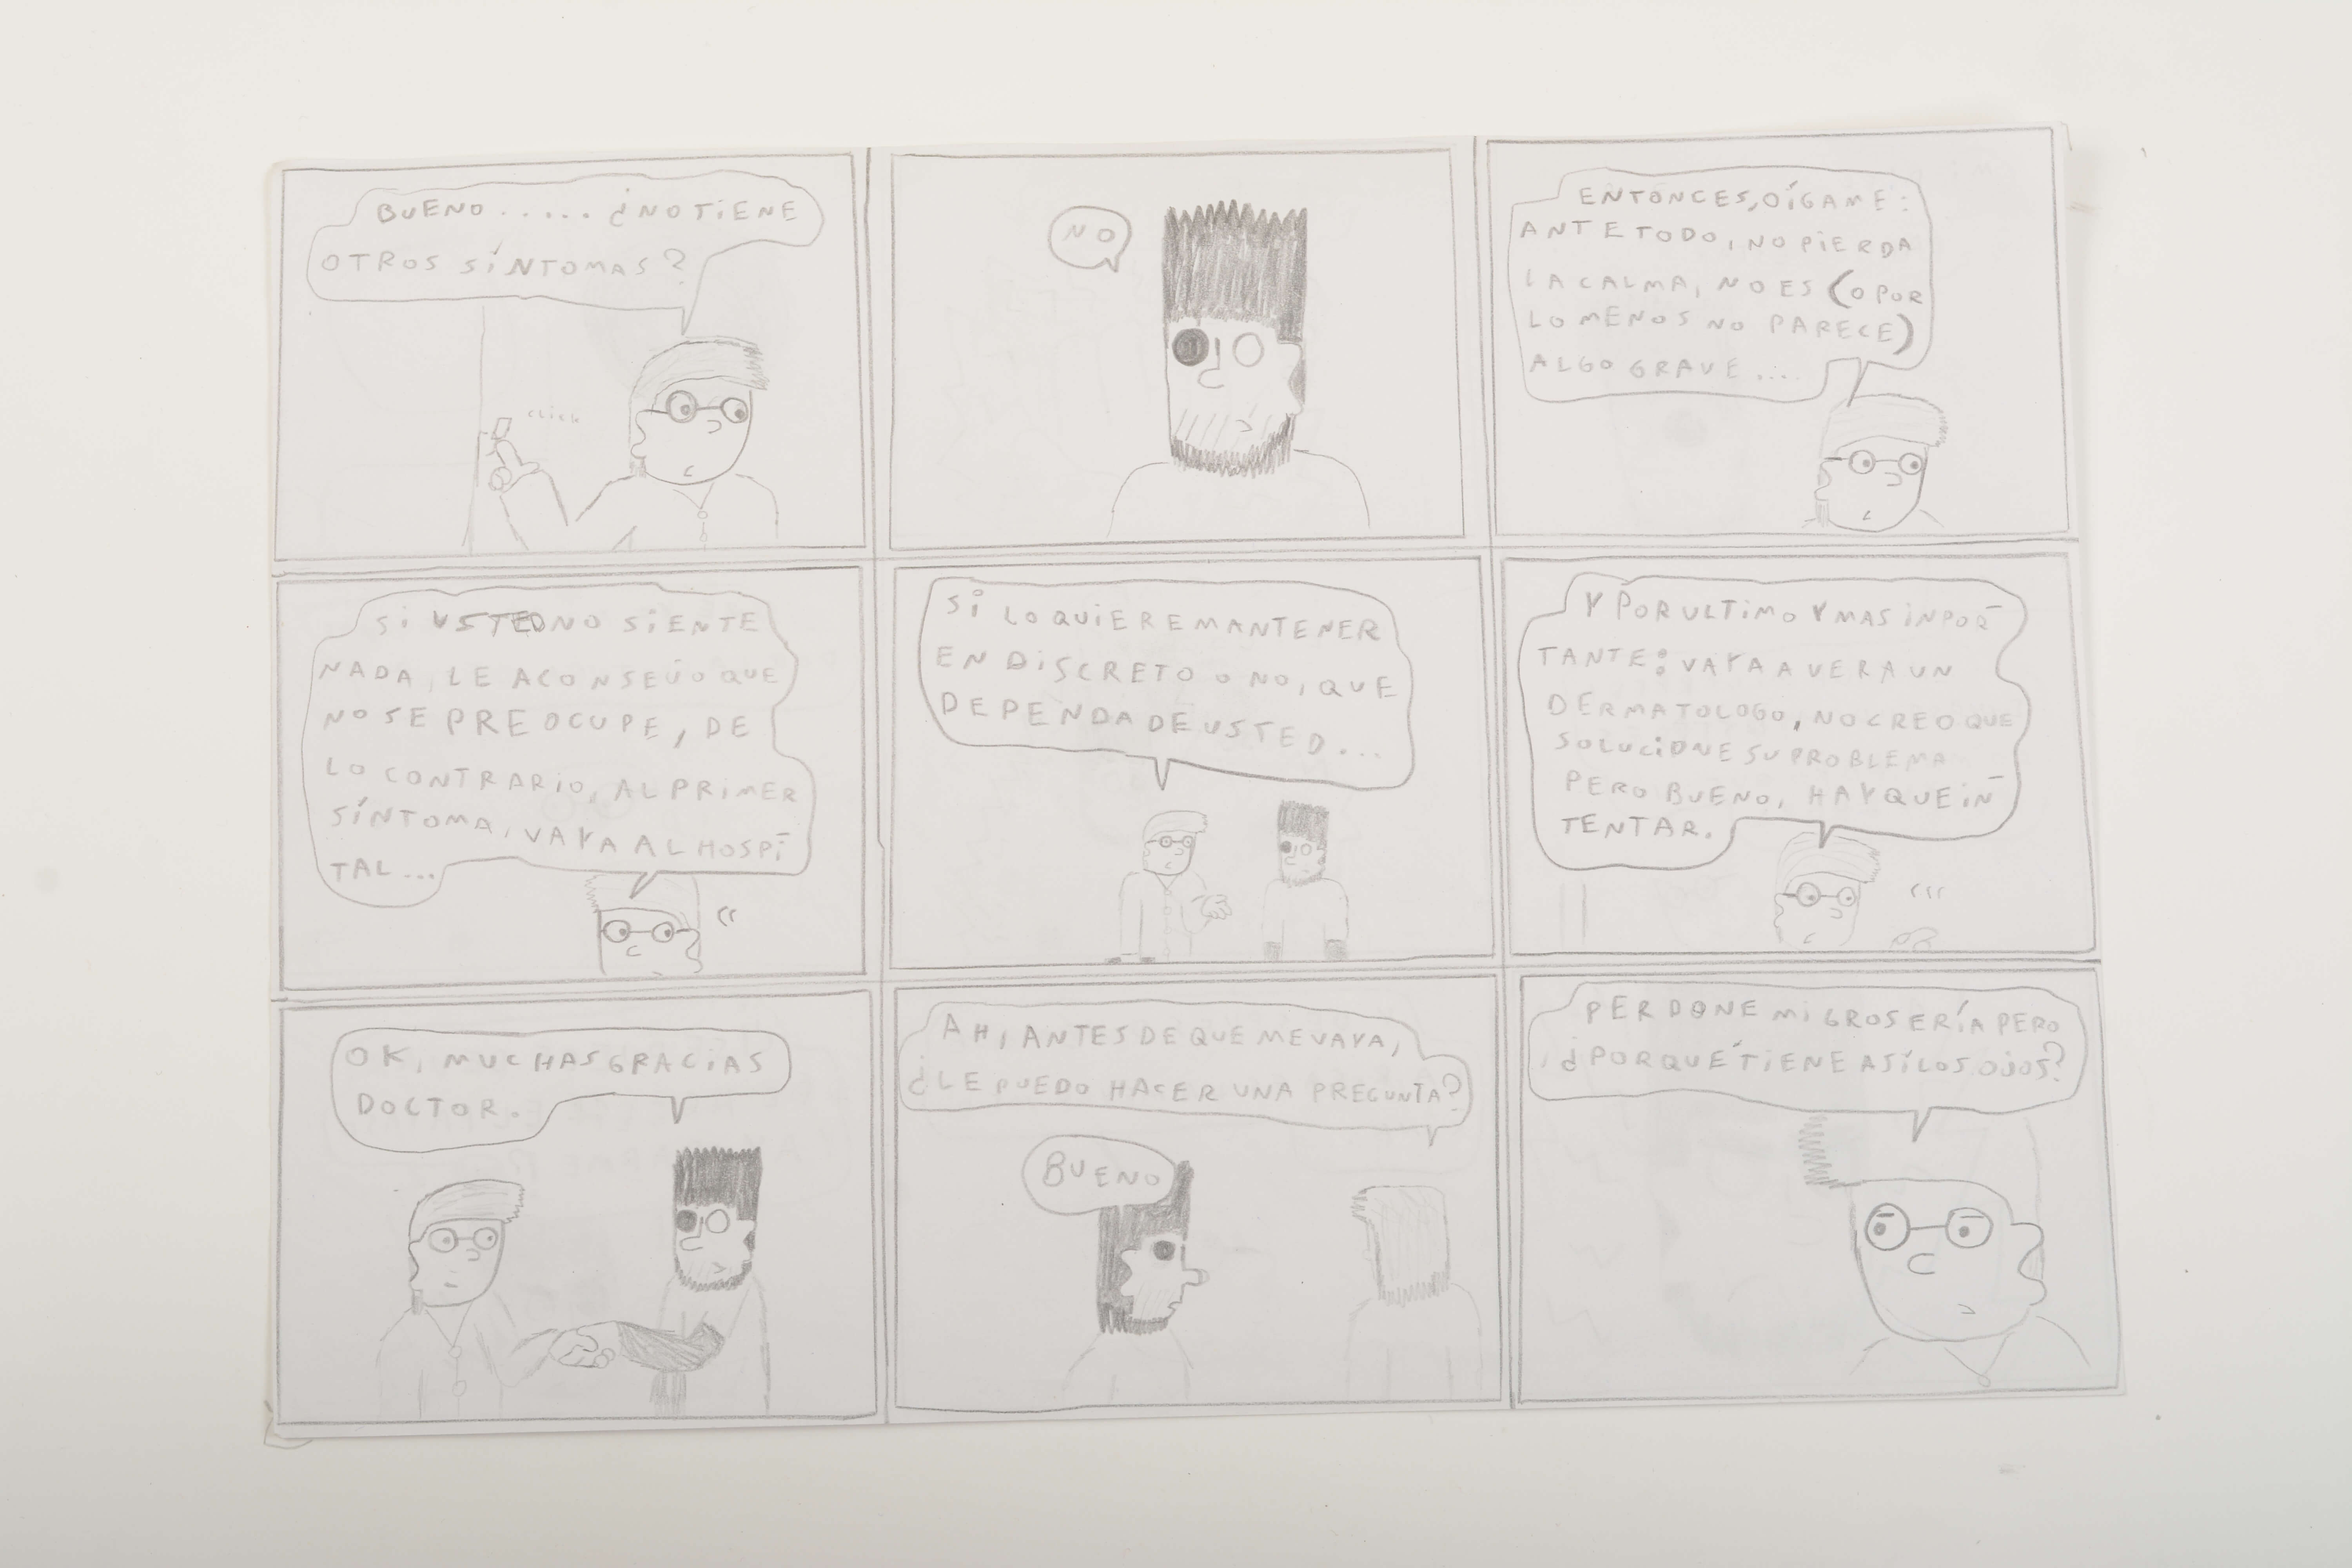 BUENO..... ¿NO TIENE
OTROS SÍNTOMAS?
CLICK
NO
ENTONCES, OÍGAME:
ANTE TODO, NO PIERDA
LA CALMA, NO ES (O POR
LO MENOS NO PARECE)
ALGO GRAVE....
SI USTED NO SIENTE
NADA, LE ACONSEJO QUE
NO SE PREOCUPE, DE
LO CONTRARIO, AL PRIMER
SÍNTOMA, VAYA AL HOSPI-
TAL...
SI LO QUIERE MANTENER
EN DISCRETO O NO, QUE
DEPENDA DE USTED...
Y POR ULTIMO Y MAS INPOR-
TANTE: VAYA A VER A UN
DERMATOLOGO, NO CREO QUE
SOLUCIONE SU PROBLEMA
PERO BUENO, HAY QUE IN-
TENTAR.
OK, MUCHAS GRACIAS
DOCTOR.
AH, ANTES DE QUE ME VAYA,
¿LE PUEDO HACER UNA PREGUNTA?
BUENO
PERDONE MI GROSERÍA PERO
¿PORQUÉ TIENE ASÍ LOS OJOS?